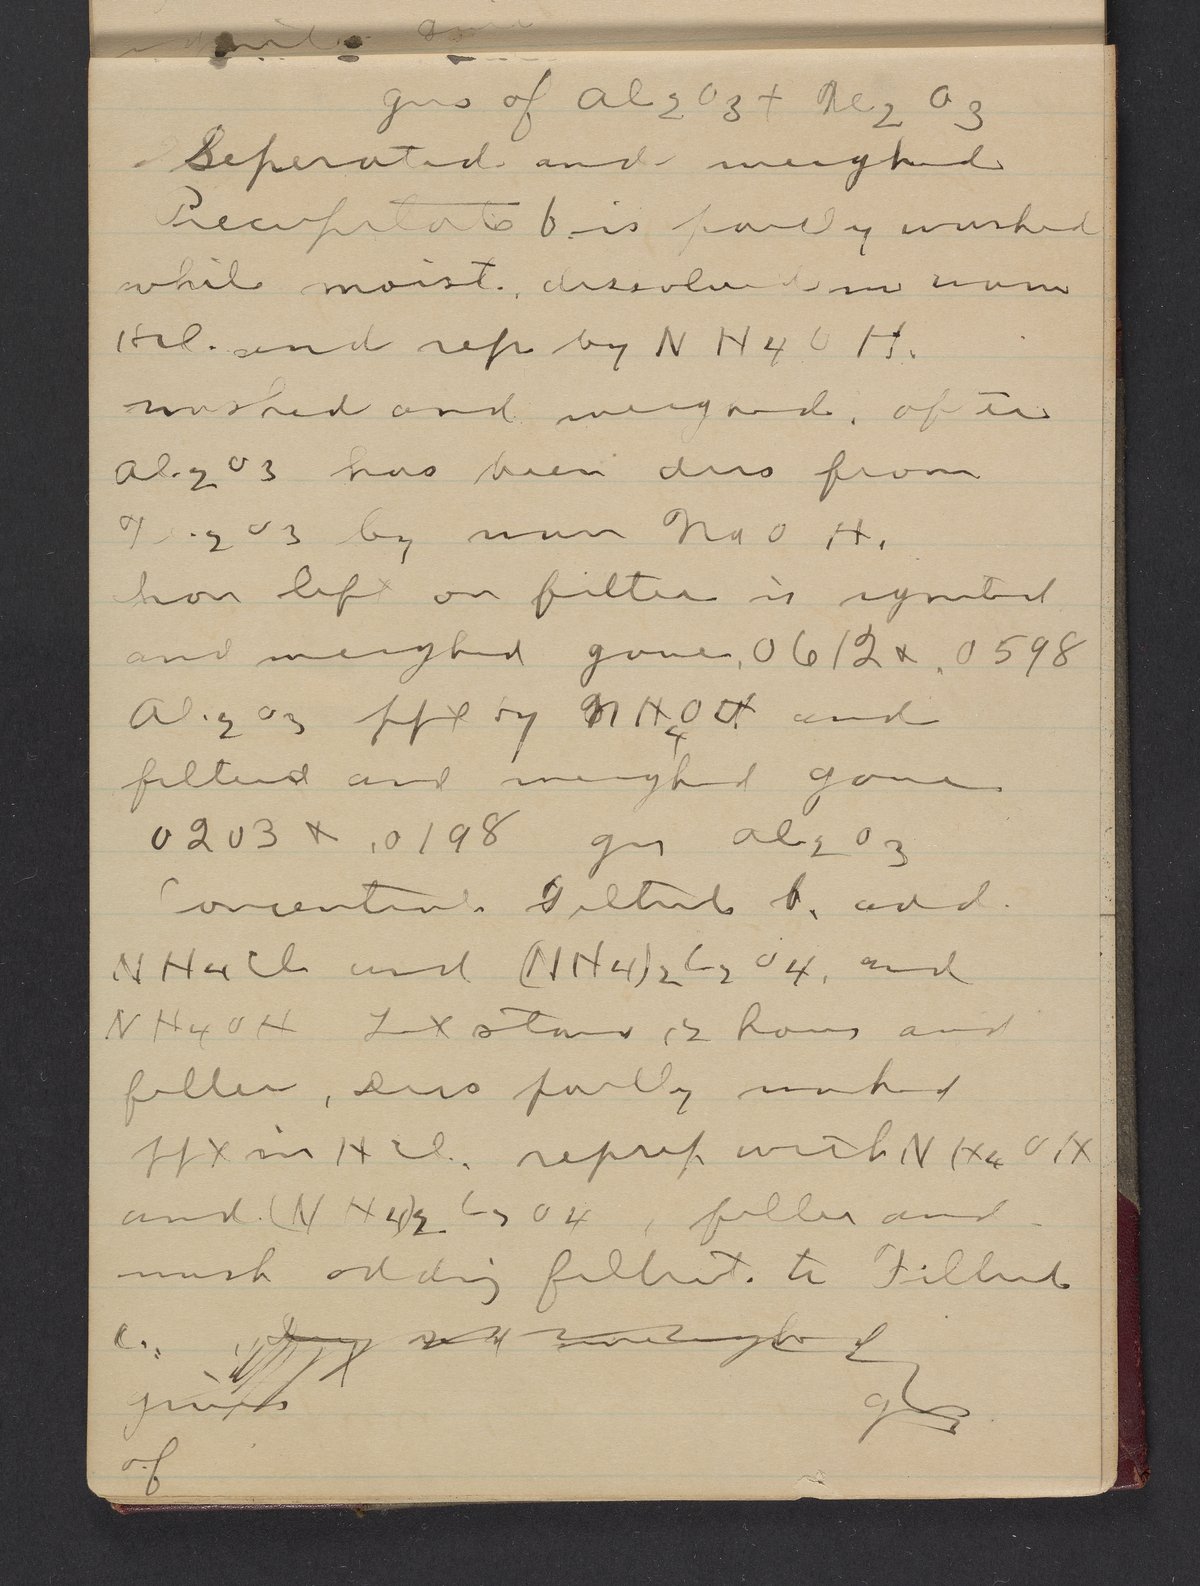 gms of Al2O3 + Fe2O3
Seperated and weighed
Precipitate b. is partly washed
while moist, dissolved in warm
HCl. and rep by NH4OH.
washed and weighed. after
Al2O3 has been diss from
Fe2O3 by warm NaOH.
Iron left on filter is ignited
and weighed gave .0612 + .0598
Al2O3 ppt by NH4OH and
filtered and weighed gave
0203 + .0198 gm Al2O3
Concentrate Filtrate b. add
NH4Cl and (NH4)2C2O4. and
NH4OH Let stand 12 hours and
filter, Diss partly washed
ppt in HCl. reprep with NH4OH
and (NH4)2C2O4, filter and
wash adding filtrate to Filtrate
c.
gives
of